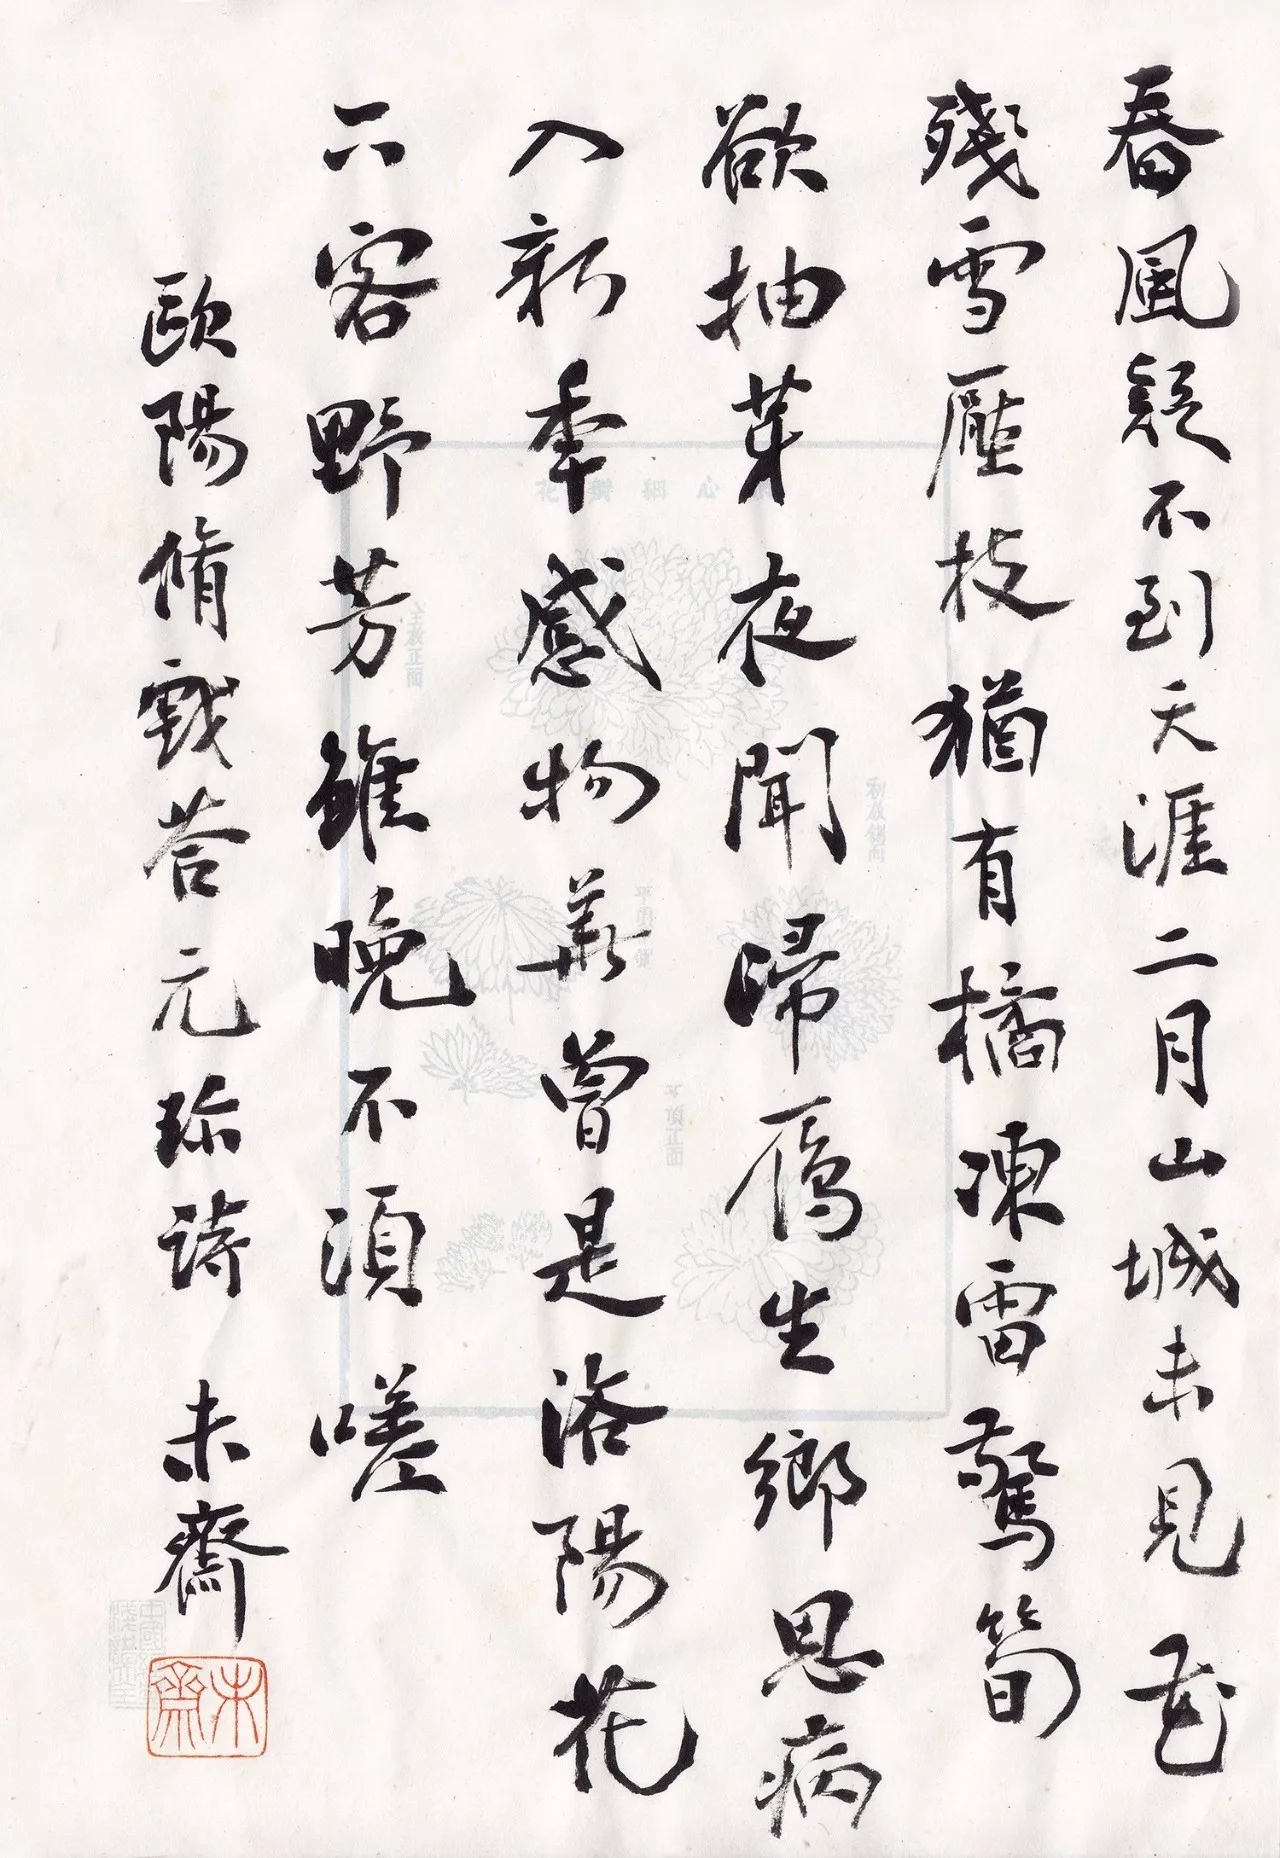 春風疑不到天涯二月山城未見花
殘雪壓枝猶有橘凍雷驚筍
欲抽芽夜聞歸鴈生鄉思病
入新年感物華曾是洛陽花
下客野芳雖晚不須嗟
歐陽脩戲荅元珍詩 未齋
未齋